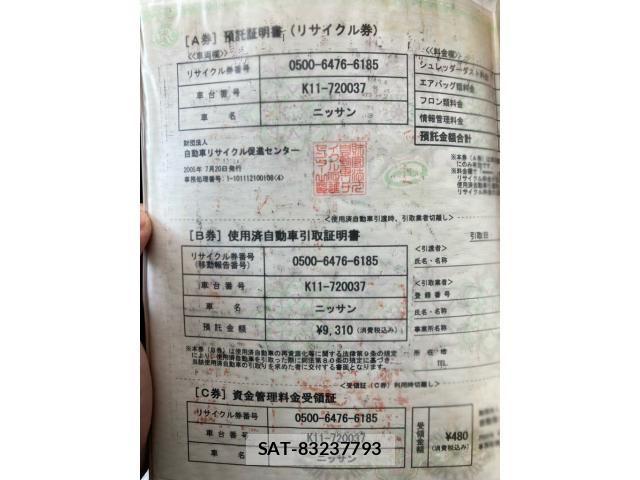 [A券] 預託証明書 (リサイクル券)
<<車両欄>>
<<料金欄>>
リサイクル券番号 0500-6476-6185
シュレッダーダスト料金
車台番号 K11-720037
エアバッグ類料金
フロン類料金
車名 ニッサン
情報管理料金
預託金額合計
財団法人
自動車リサイクル促進センター
2005年 7月20日発行
事務処理番号: 1-101112100106(4)
<使用済自動車引渡時、引取業者切離し>
[B券] 使用済自動車引取証明書
引取日
リサイクル券番号
(移動報告番号)
0500-6476-6185
<引渡者>
氏名・名称
車台番号 K11-720037
<引取業者>
登録番号
車名 ニッサン
氏名・名称
預託金額 ¥9,310 (消費税込み)
事業所名称
※本券(B券)は使用済自動車の再資源化等に関する法律第9条の規定
により、使用済自動車を引取った際に同法第80条の規定に基づき、
当該使用済自動車の引取りを求めた者に交付する書面となります。
所在地
TEL
<受領証(C券)利用時切離し>
[C券] 資金管理料金受領証
リサイクル券番号 0500-6476-6185
車台番号 K11-720037
車名 ニッサン
受領金額
¥480
(消費税込み)
SAT-83237793